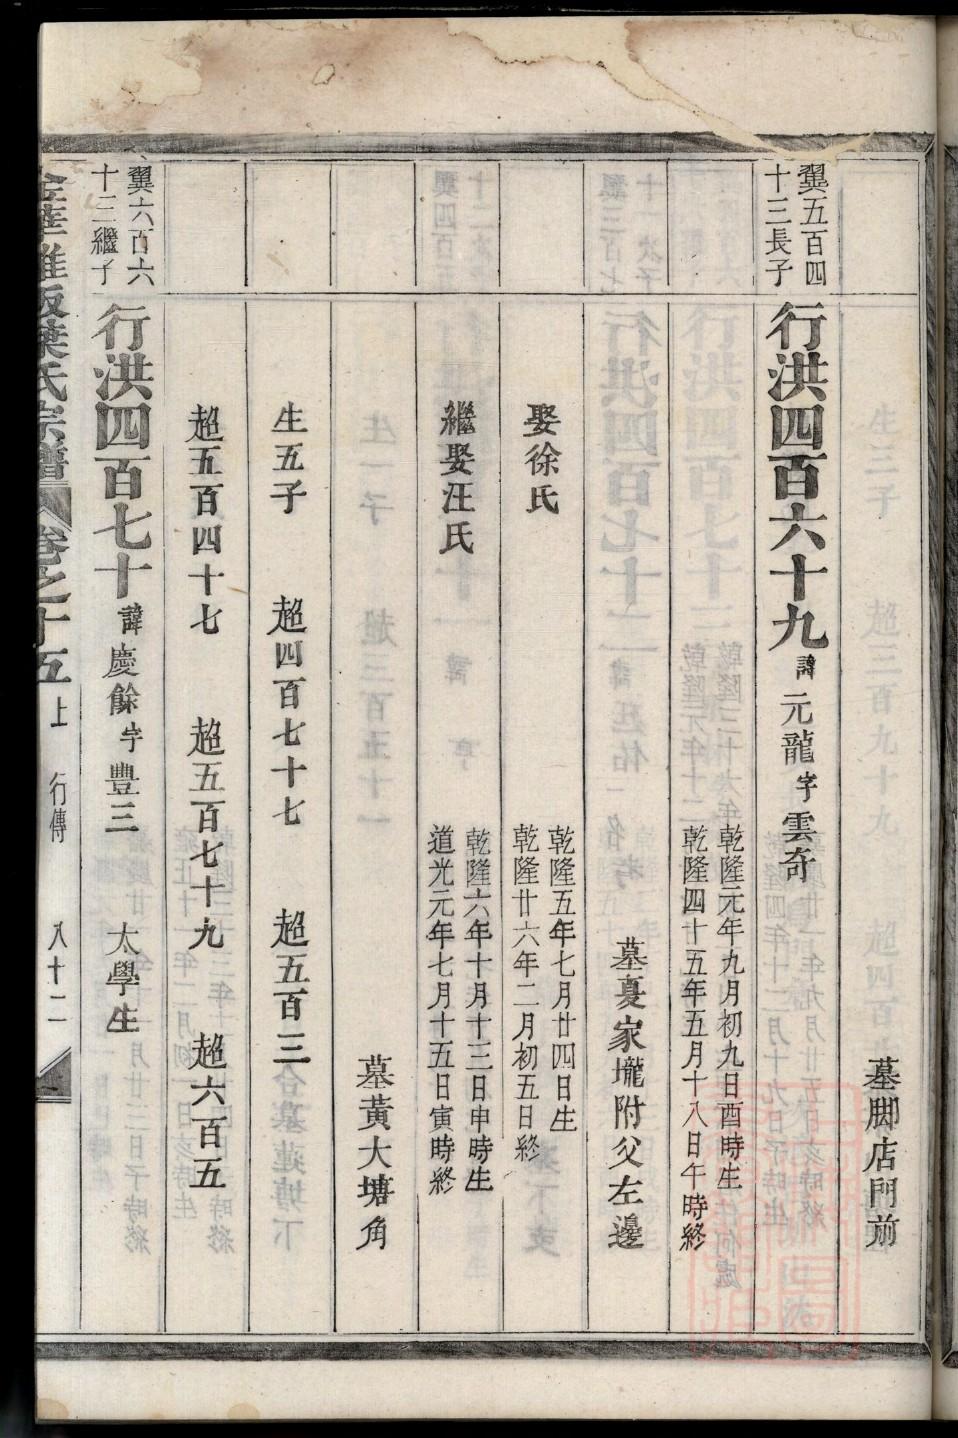 墓脚店門前
翼五百四
十三長子
行洪四百六十九 諱元龍字雲奇
乾隆元年九月初九日酉時生
乾隆四十五年五月十八日午時終
墓夏家壠附父左邊
娶徐氏
乾隆五年七月廿四日生
乾隆廿六年二月初五日終
繼娶汪氏
乾隆六年十月十三日申時生
道光元年七月十五日寅時終
墓黃大塘角
生五子 超四百七十七 超五百三
超五百四十七 超五百七十九 超六百五
翼六百六
十三繼子
行洪四百七十 諱慶餘字豐三 太學生
葉氏宗譜 卷之十五上 行傳 八十二